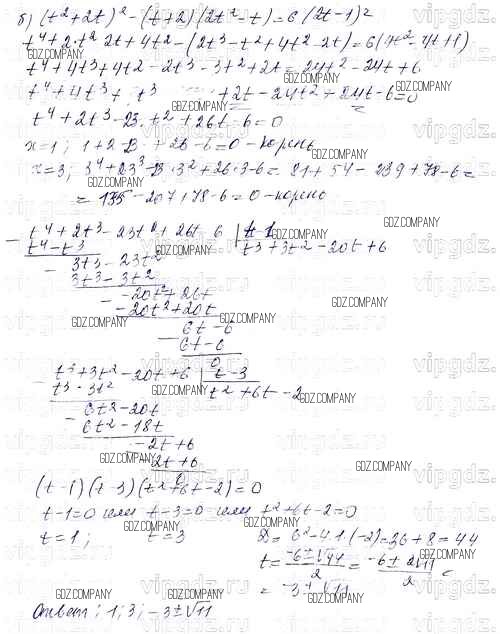 б) (t²+2t)² - (t+2)(2t²-t) = 6(2t-1)²
t⁴+2·t²·2t+4t² - (2t³-t²+4t²-2t) = 6(4t²-4t+1)
t⁴+4t³+4t²-2t³-3t²+2t = 24t²-24t+6
t⁴+4t³+ t³ +2t-24t²+24t-6=0
t⁴+2t³-23t²+26t-6=0
x=1; 1+2-23+26-6=0 - корень
x=3; 3⁴+2·3³-23·3²+26·3-6 = 81+54-239+78-6=
= 135-207+78-6=0 - корень
t⁴+2t³-23t²+26t-6 | t-1
t⁴-t³ t³+3t²-20t+6
3t³-23t²
3t³-3t²
-20t²+26t
-20t²+20t
6t-6
6t-6
0
t³+3t²-20t+6 | t-3
t³-3t² t²+6t-2
6t²-20t
6t²-18t
-2t+6
2t+6
0
(t-1)(t-3)(t²+6t-2)=0
t-1=0 или t-3=0 или t²+6t-2=0
t=1; t=3 D=6²-4·1·(-2)=36+8=44
t= (-6±√44)/2 = (-6±2√11)/2 =
= -3±√11
Ответ: 1; 3; -3±√11
GDZ.COMPANY
vipgdz.ru